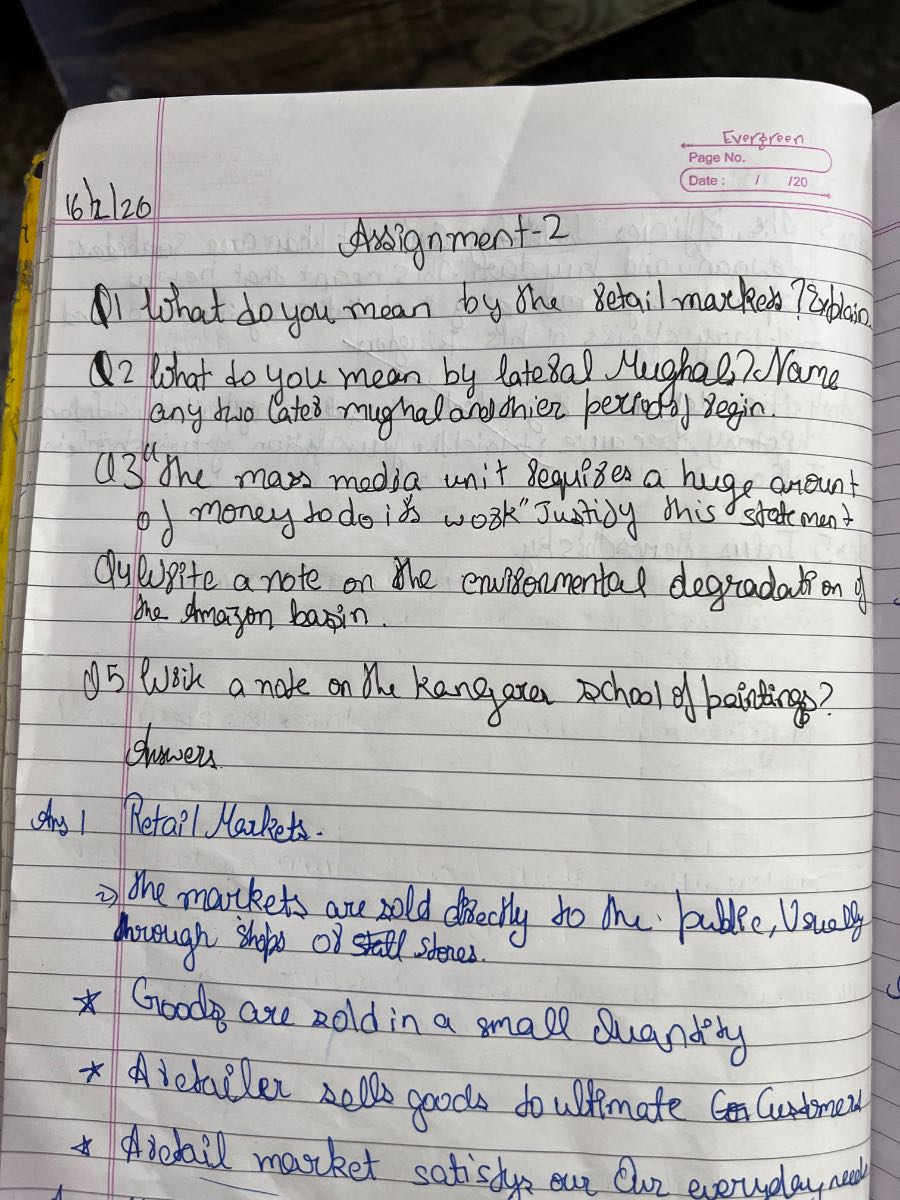 Evergreen
Page No.
Date : / /20
16/2/26
Assignment-2
Q1 What do you mean by the retail markets? Explain
Q2 What do you mean by lateral Mughals? Name
any two later mughal and thier periods of reign.
Q3 "The mass media unit requires a huge amount
of money to do it's work" Justify this statement
Q4 Write a note on the environmental degradation of
the Amazon basin.
Q5 Write a note on the kangaren school of paintings?
Answers
Ans 1 Retail Markets.
The markets are sold directly to the public, Usually
through shops or stores.
* Goods are sold in a small Quantity
* A retailer sells goods to ultimate Customers
* A retail market satisfys our Our everyday needs